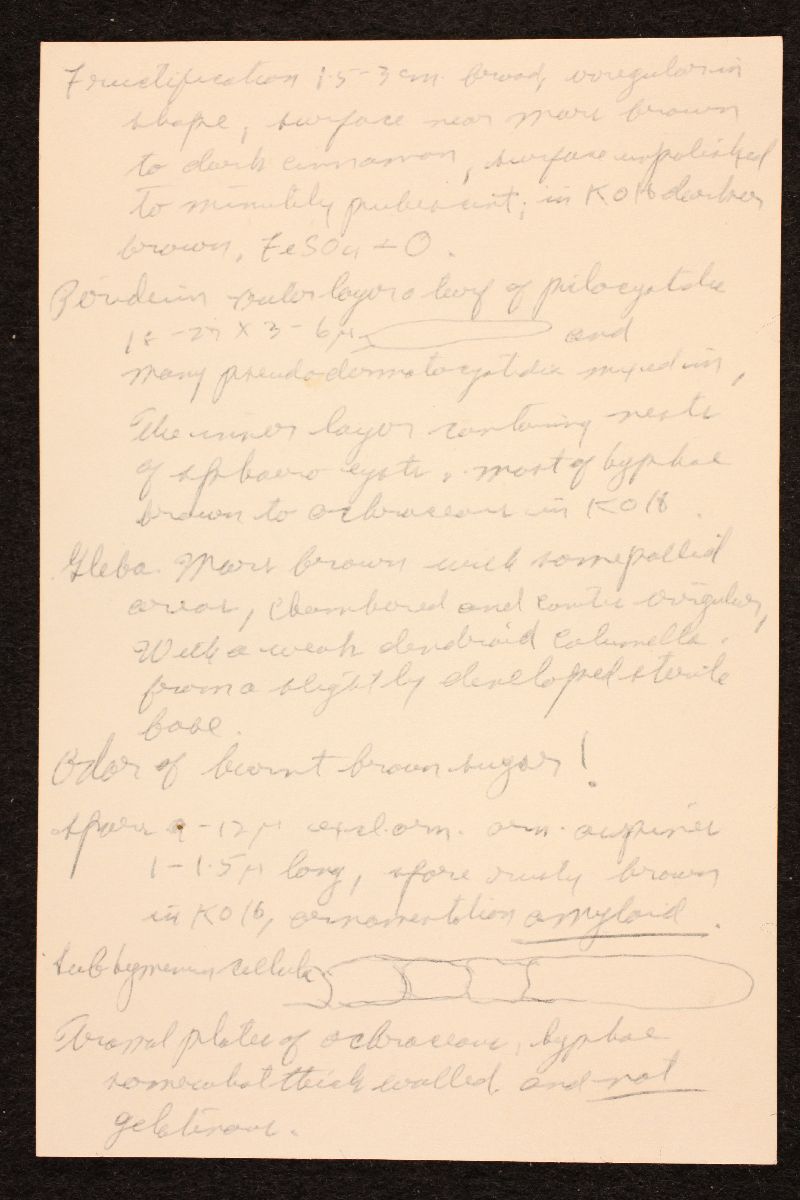 Fructification 1.5-3 cm. broad, irregular in
shape, surface near mars brown
to dark cinnamon, surface unpolished
to minutely pubescent; in KOH darker
brown, FeSO4 = O.
Peridium outer layer a turf of pilocystidia
18-27 x 3-6 μ and
many pseudodermatocystidia mixed in,
The inner layer containing nests
of sphaerocysts, most of hyphae
brown to ochraceous in KOH.
Gleba Mars brown with some pallid
areas, chambered and contex irregular,
With a weak dendroid columella
from a slightly developed sterile
base.
Odor of burnt brown sugar!
Spores 9-12 μ excl. orn. orn. of spines
1-1.5 μ long, spore rusty brown
in KOH, ornamentation amyloid.
Subhymenium cellular
Tramal plates of ochraceous, hyphae
somewhat thick walled and not
gelatinous.